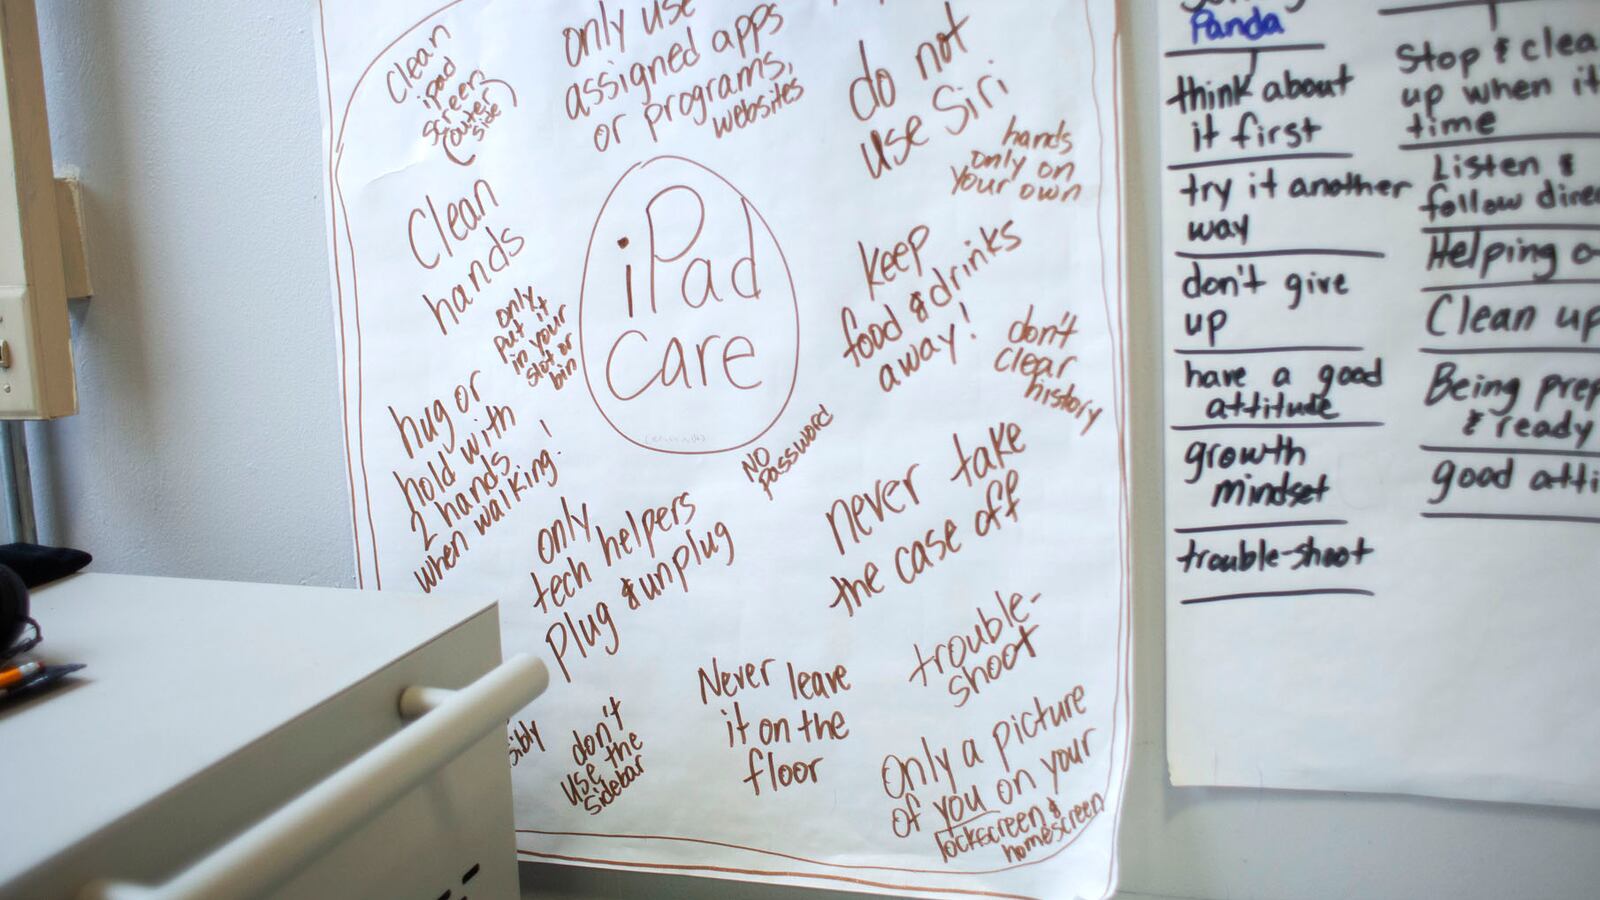 clean
ipad
screen
(outer
side)
only use
assigned apps
or programs,
websites
do not
use Siri
hands
only on
your own
Clean
hands
only
put it
in your
slot or
bin
iPad
Care
keep
food & drinks
away!
don't
clear
history
hug or
hold with
2 hands
when walking!
NO
password
only
tech helpers
plug & unplug
never take
the case off
trouble-
shoot
don't
use the
sidebar
Never leave
it on the
floor
Only a picture
of you on your
lockscreen &
homescreen
Panda
think about
it first
try it another
way
don't give
up
have a good
attitude
growth
mindset
trouble-shoot
Stop & clea
up when it
time
Listen &
follow dire
Helping o
Clean up
Being prep
& ready
good atti